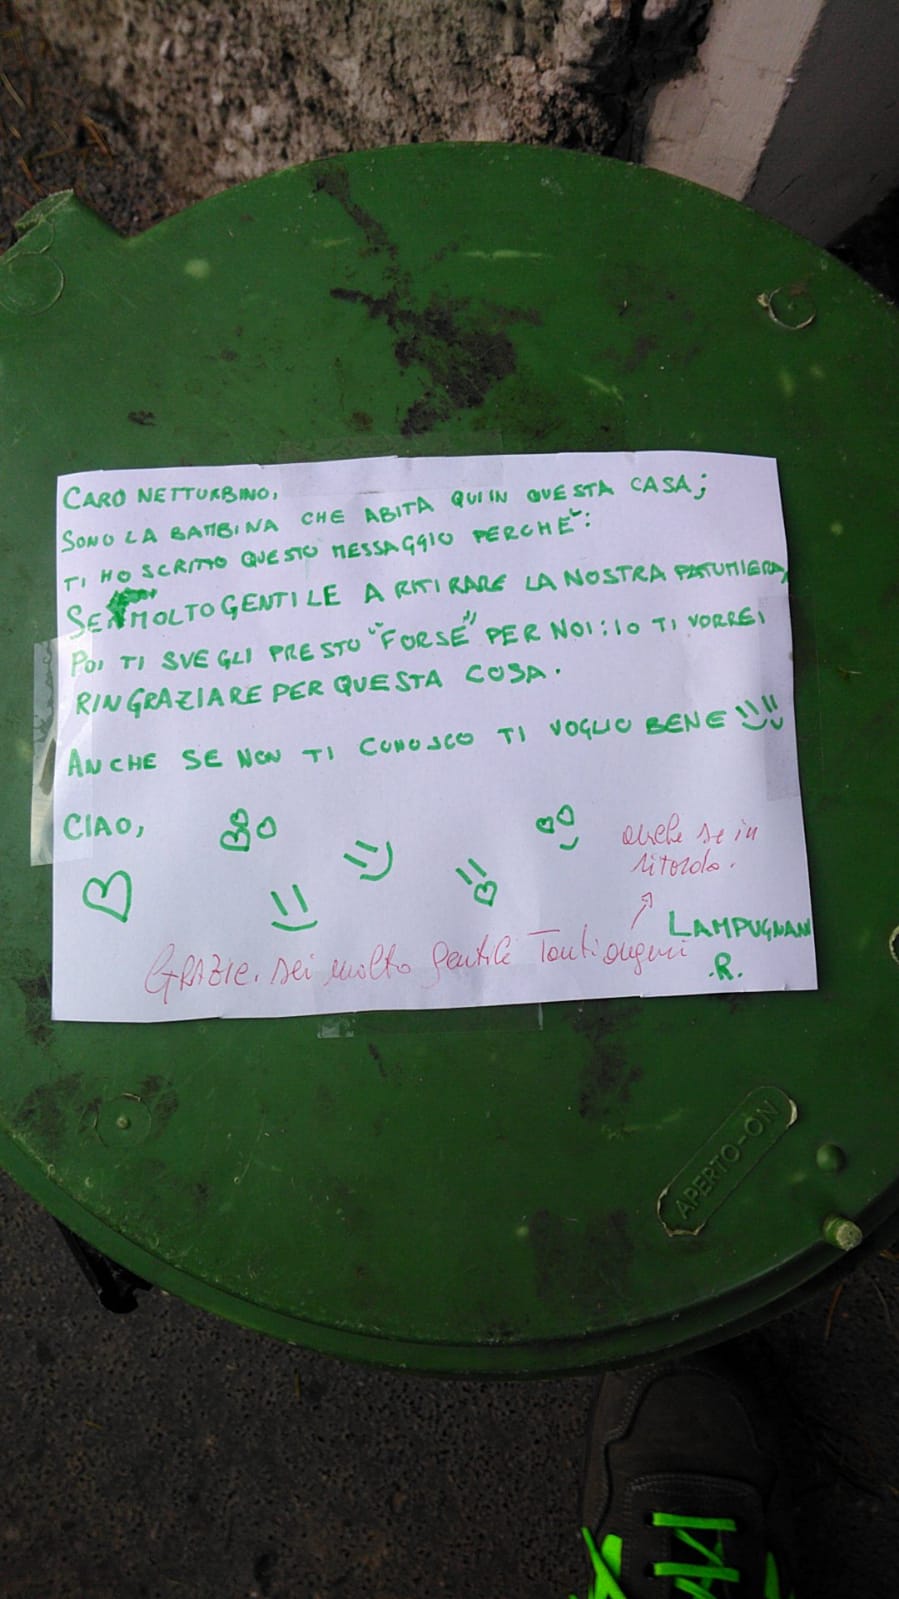 CARO NETTURBINO,
SONO LA BAMBINA CHE ABITA QUI IN QUESTA CASA;
TI HO SCRITTO QUESTO MESSAGGIO PERCHE':
SEI MOLTO GENTILE A RITIRARE LA NOSTRA PATUMIERA,
POI TI SVEGLI PRESTO "FORSE" PER NOI: IO TI VORREI
RINGRAZIARE PER QUESTA COSA.
ANCHE SE NON TI CONOSCO TI VOGLIO BENE
CIAO,
anche se in
ritardo.
LAMPUGNANI
.R.
GRAZIE. sei molto gentile Tanti auguri
APERTO-ON